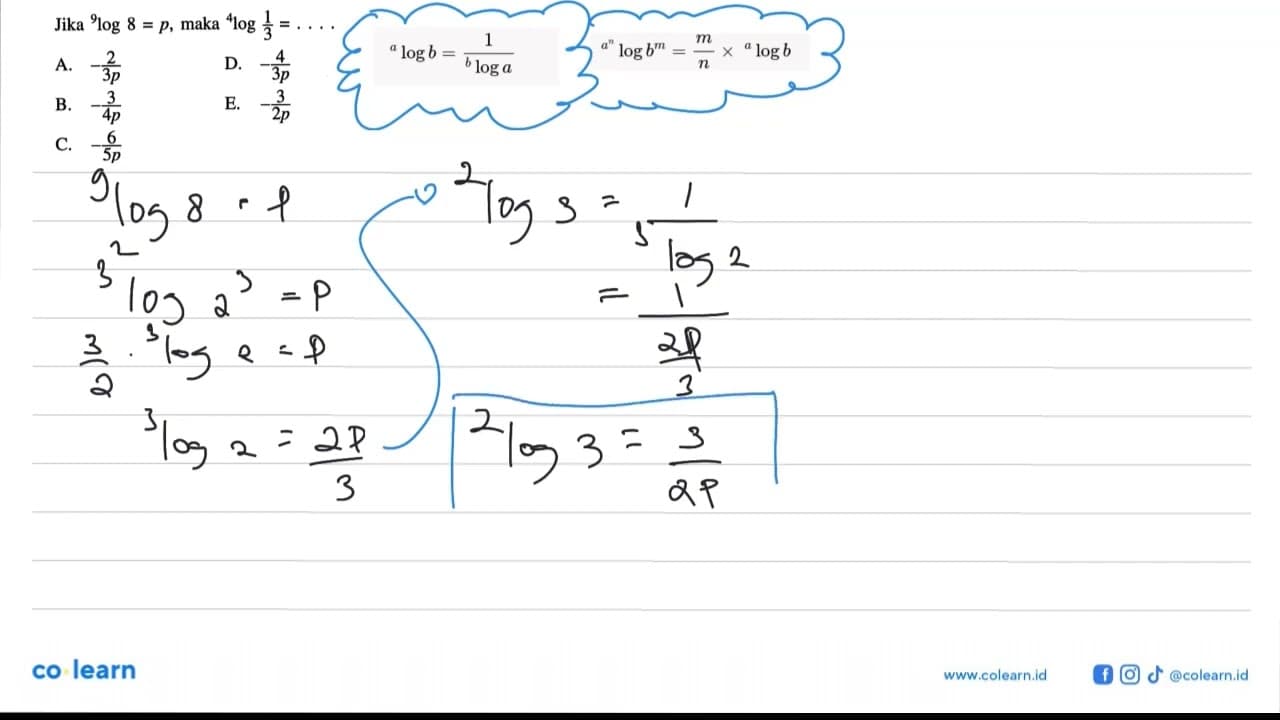 Jika ⁹log 8 = p, maka ⁴log 1/3 = . . . .
A. -2/3p
B. -3/4p
C. -6/5p
D. -4/3p
E. -3/2p
ᵃ log b = 1/ᵇ log a
ᵃⁿ log bᵐ = m/n × ᵃ log b
⁹log 8 = p
3² log 2³ = p
3/2 . ³log 2 = p
³log 2 = 2p/3
²log 3 = 1/³log 2
= 1/(2p/3)
²log 3 = 3/2p
co learn
www.colearn.id
@colearn.id